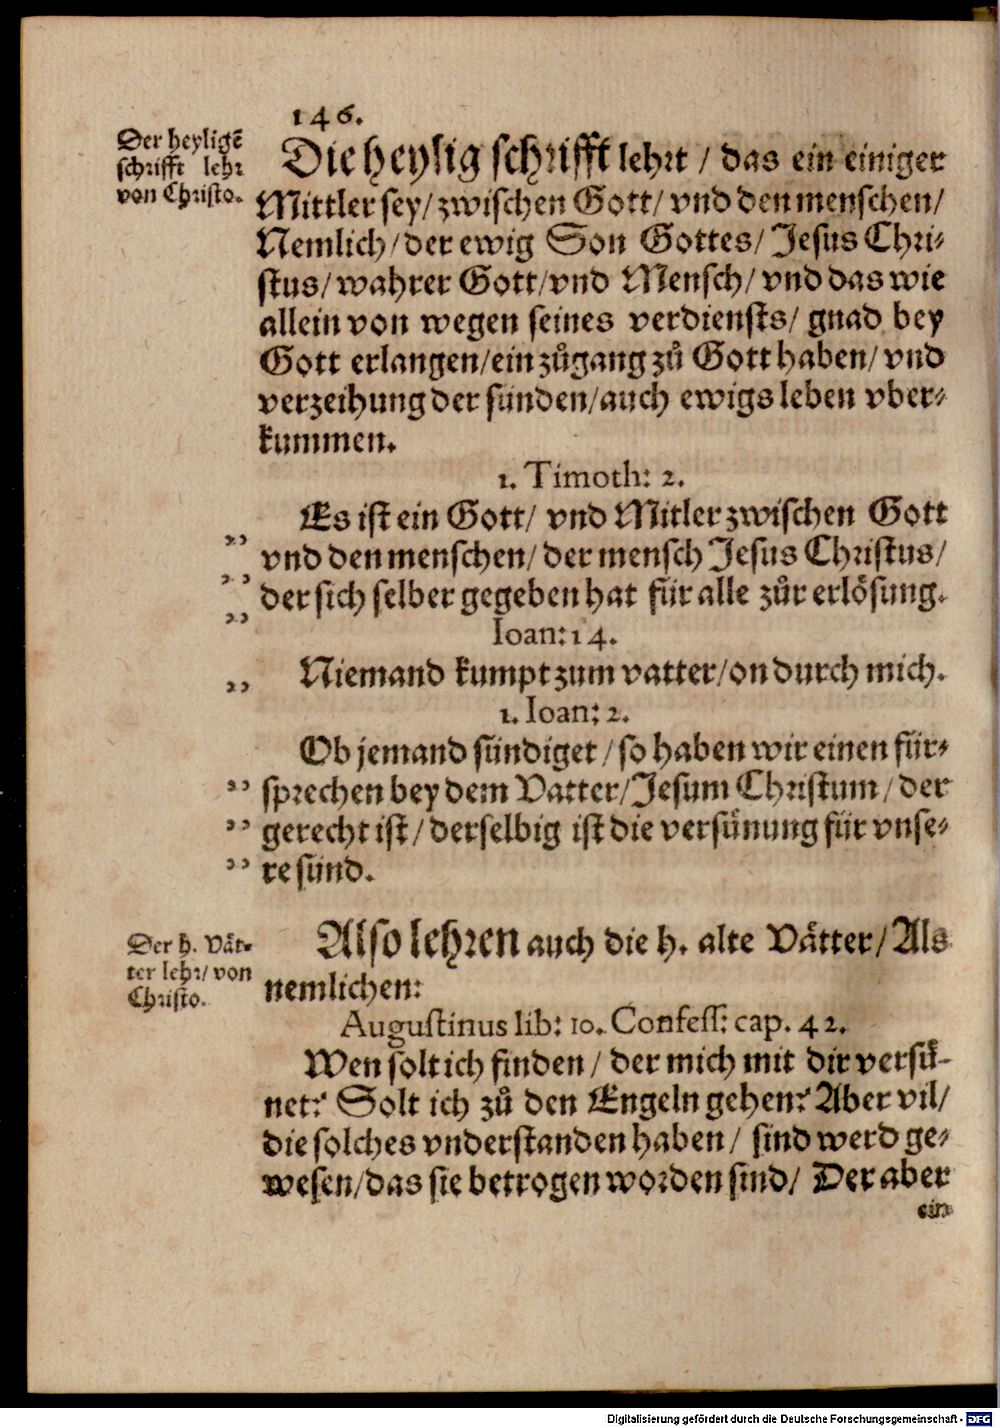 146.
Der heyligẽ
schrifft lehr
von Christo.
Die heylig schrifft lehrt / das ein einiger
Mittler sey/ zwischen Gott/ vnd den menschen/
Nemlich/ der ewig Son Gottes/ Jesus Chri-
stus/ wahrer Gott/vnd Mensch/ vnd das wie
allein von wegen seines verdiensts/ gnad bey
Gott erlangen/ein zůgang zů Gott haben/ vnd
verzeihung der sünden/auch ewigs leben vber-
kummen.
1. Timoth: 2.
Es ist ein Gott/ vnd Mitler zwischen Gott
vnd den menschen/ der mensch Jesus Christus/
der sich selber gegeben hat für alle zůr erlösung.
Ioan: 14.
Niemand kumpt zum vatter/on durch mich.
1. Ioan: 2.
Ob jemand sündiget / so haben wir einen für-
sprechen bey dem Vatter/Jesum Christum / der
gerecht ist / derselbig ist die versünung für vnse-
re sünd.
Der h. Vät-
ter lehr/ von
Christo.
Also lehren auch die h. alte Vätter/ Als
nemlichen:
Augustinus lib: 10. Confess: cap. 42.
Wen solt ich finden / der mich mit dir versü-
net? Solt ich zů den Engeln gehen? Aber vil/
die solches vnderstanden haben / sind werd ge-
wesen/das sie betrogen worden sind/ Der aber
ein
Digitalisierung gefördert durch die Deutsche Forschungsgemeinschaft - DFG